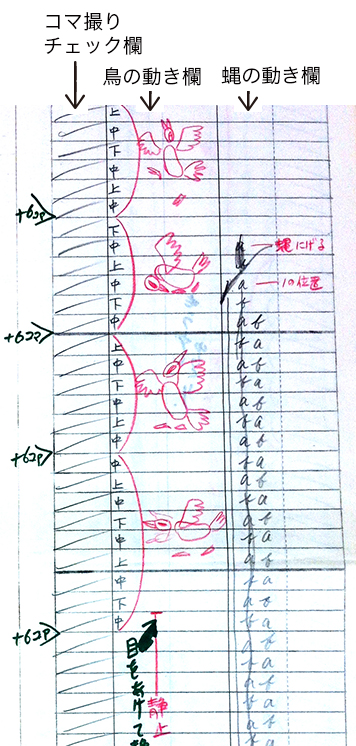 コマ撮り
チェック欄
鳥の動き欄
蝿の動き欄
上
中
下
中
上
中
+6コマ
下
中 a 蝿にげる
上
中 a 1の位置
下 b
中 a b
+6コマ
上 b a
中 a b
下 b a
中 a b
上 b a
中 a b
+6コマ
中 b a
上 a b
中 b a
下 a b
中 b a
上 a b
中 b a
下 a b
中 b a
+6コマ
a b
b a
a b
b a
a b
b a
目をあけて
静止